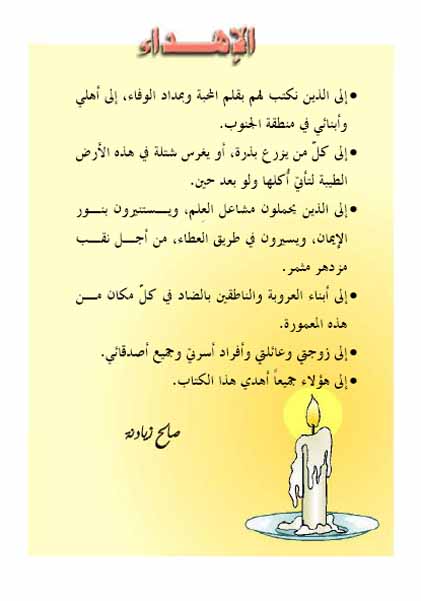 الإهداء
• إلى الذين نكتب لهم بقلم المحبة وبمداد الوفاء، إلى أهلي
وأبنائي في منطقة الجنوب.
• إلى كلّ من يزرع بذرة، أو يغرس شتلة في هذه الأرض
الطيبة لتأتيَ أُكلها ولو بعد حين.
• إلى الذين يحملون مشاعل العِلم، ويستنيرون بنور
الإيمان، ويسيرون في طريق العطاء، من أجل نقب
مزدهر مثمر.
• إلى أبناء العروبة والناطقين بالضاد في كلّ مكان من
هذه المعمورة.
• إلى زوجتي وعائلتي وأفراد أسرتي وجميع أصدقائي.
• إلى هؤلاء جميعاً أهدي هذا الكتاب.
صالح زيادنة